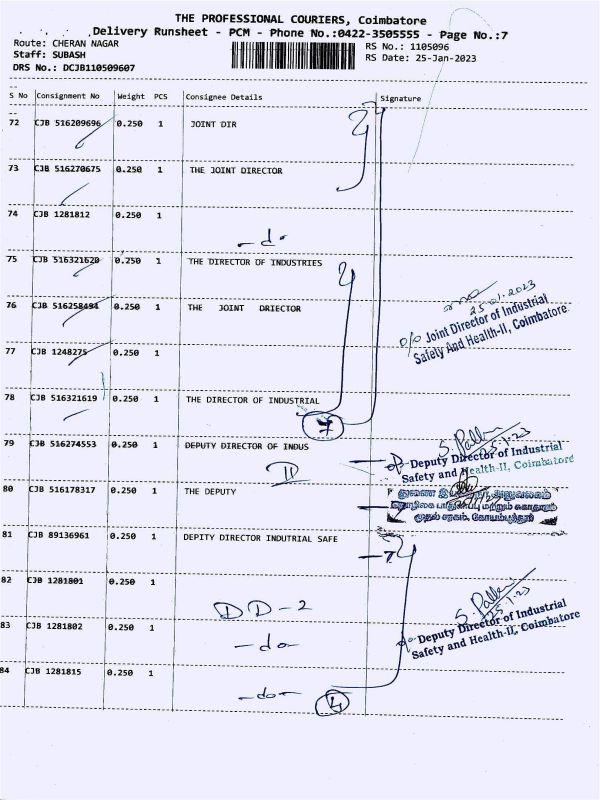 THE PROFESSIONAL COURIERS, Coimbatore
Delivery Runsheet - PCM - Phone No.:0422-3505555 - Page No.:7
Route: CHERAN NAGAR
RS No.: 1105096
Staff: SUBASH
RS Date: 25-Jan-2023
DRS No.: DCJB110509607
S No Consignment No Weight PCS Consignee Details Signature
72 CJB 516209696 0.250 1 JOINT DIR
73 CJB 516270675 0.250 1 THE JOINT DIRECTOR
74 CJB 1281812 0.250 1
-do-
75 CJB 516321620 0.250 1 THE DIRECTOR OF INDUSTRIES
25.01.2023
76 CJB 516258494 0.250 1 THE JOINT DRIECTOR
o/o Joint Director of Industrial
Safety And Health-II, Coimbatore.
77 CJB 1248275 0.250 1
78 CJB 516321619 0.250 1 THE DIRECTOR OF INDUSTRIAL
7
25.1.23
79 CJB 516274553 0.250 1 DEPUTY DIRECTOR OF INDUS
Deputy Director of Industrial
II
Safety and Health-II, Coimbatore
80 CJB 516178317 0.250 1 THE DEPUTY
முதல் சரகம், கோயம்புத்தூர்
81 CJB 89136961 0.250 1 DEPITY DIRECTOR INDUTRIAL SAFE
7
82 CJB 1281801 0.250 1
DD-2
25.1.23
Deputy Director of Industrial
Safety and Health-II, Coimbatore
83 CJB 1281802 0.250 1
-do-
84 CJB 1281815 0.250 1
-do-
4